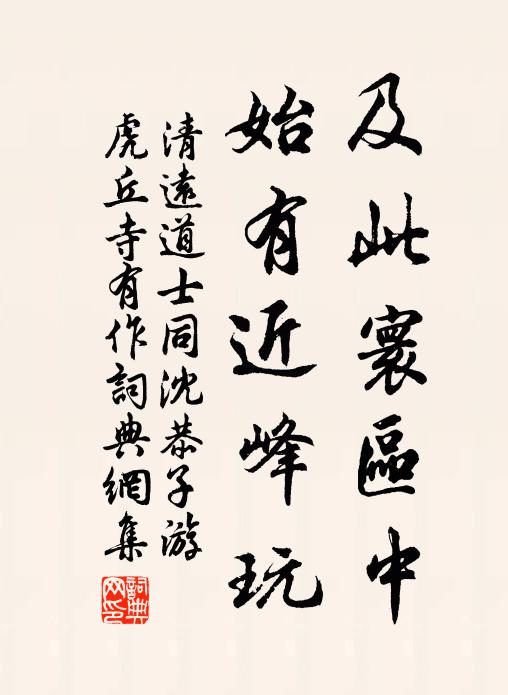 及此寰區中
始有近峰玩
清遠道士同沈恭子游
虎丘寺有作詞典網集
詞典网印